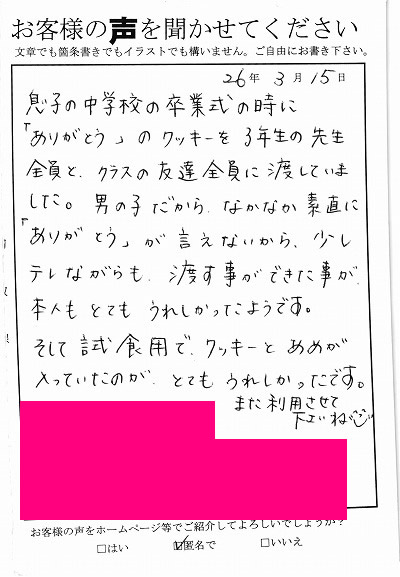 お客様の声を聞かせてください
文章でも箇条書きでもイラストでも構いません。ご自由にお書き下さい。
26年 3月 15日
息子の中学校の卒業式の時に
「ありがとう」のクッキーを3年生の先生
全員と、クラスの友達全員に渡していま
した。男の子だから、なかなか素直に
「ありがとう」が言えないから、少し
テレながらも、渡す事ができた事が、
本人もとてもうれしかったようです。
そして試食用で、クッキーとあめが
入っていたのが、とてもうれしかったです。
また利用させて
下さいね
お客様の声をホームページ等でご紹介してよろしいでしょうか?
□はい ☑匿名で □いいえ